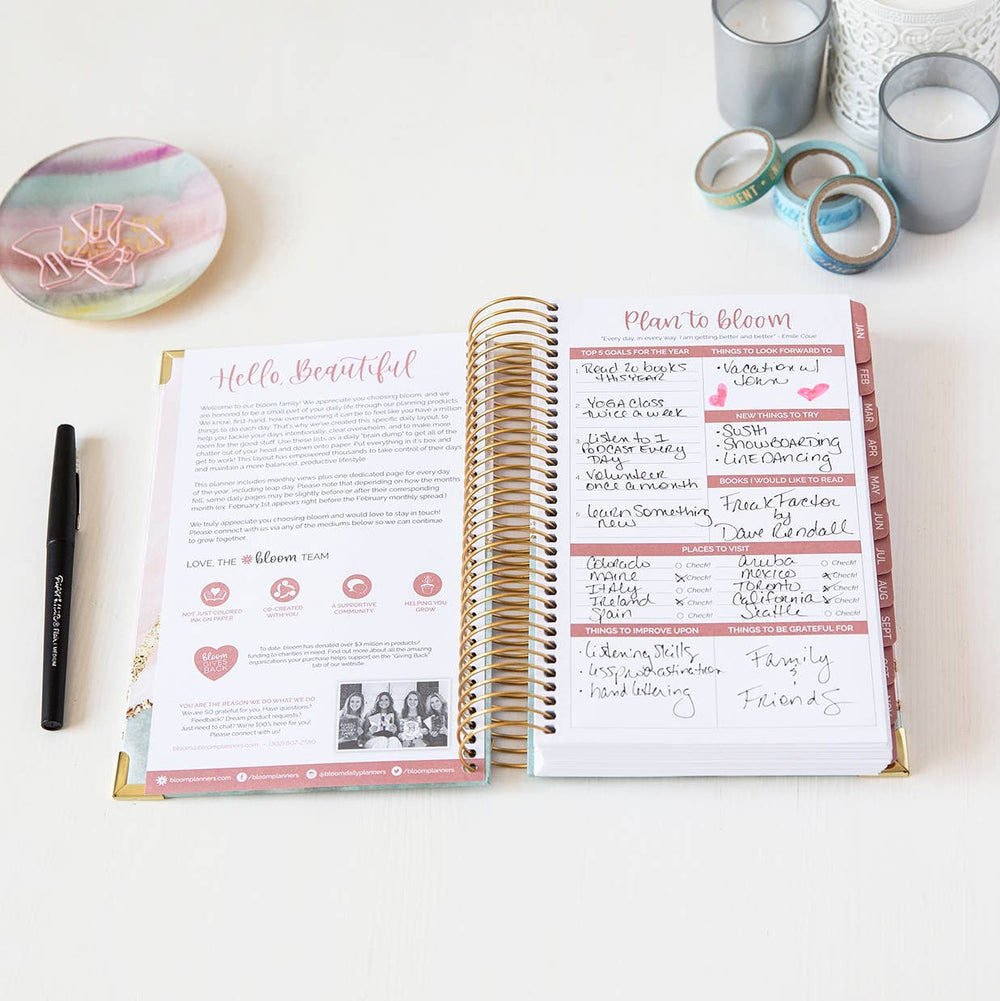 Hello, Beautiful
Welcome to our bloom family! We appreciate you choosing bloom, and we
are honored to be a small part of your daily life through our planning products.
We know, first-hand, how overwhelming it can be to feel like you have a million
things to do each day. That's why we've created this specific daily layout, to
help you tackle your days intentionally, clear overwhelm, and to make more
room for the good stuff. Use these lists as a daily "brain dump" to get all of the
chatter out of your head and down onto paper. Put everything in it's box and
get to work! This layout has empowered thousands to take control of their days
and maintain a more balanced, productive lifestyle.
This planner includes monthly views plus one dedicated page for every day
of the year, including leap day. Please note that depending on how the months
fell, some daily pages may be slightly before or after their corresponding
month (ex: February 1st appears right before the February monthly spread.)
We truly appreciate you choosing bloom and would love to stay in touch!
Please connect with us via any of the mediums below so we can continue
to grow together.
LOVE, THE bloom TEAM
NOT JUST COLORED
INK ON PAPER
CO-CREATED
WITH YOU
A SUPPORTIVE
COMMUNITY
HELPING YOU
GROW
bloom
GIVES
BACK
To date, bloom has donated over $3 million in products/
funding to charities in need. Find out more about all the amazing
organizations your purchase helps support on the "Giving Back"
tab of our website.
YOU ARE THE REASON WE DO WHAT WE DO
We are SO grateful for you. Have questions?
Feedback? Dream product requests?
Just need to chat? We're 100% here for you!
Please connect with us!
bloom@bloomplanners.com • (302) 607-2580
bloomplanners.com
@bloomplanners
@bloomdailyplanners
@bloomplanners
Plan to bloom
"Every day, in every way, I am getting better and better" - Emile Coue
TOP 5 GOALS FOR THE YEAR
1. Read 20 books
THIS YEAR
2. YOGA CLASS
twice a week
3. Listen to 1
PODCAST EVERY
DAY
4. Volunteer
once a month
5. learn Something
new
THINGS TO LOOK FORWARD TO
• Vacation w/
John
NEW THINGS TO TRY
• SUSHI
• SNOWBOARDING
• LINE DANCING
BOOKS I WOULD LIKE TO READ
Freak Factor
by
Dave Rendall
PLACES TO VISIT
Colorado Check!
MAINE Check!
ITALY Check!
Ireland Check!
Spain Check!
Aruba Check!
MEXICO Check!
TORONTO Check!
California Check!
Seattle Check!
THINGS TO IMPROVE UPON
• Listening Skills
• less procrastination
• hand lettering
THINGS TO BE GRATEFUL FOR
Family
&
Friends
JAN
FEB
MAR
APR
MAY
JUN
JUL
AUG
SEPT
OCT